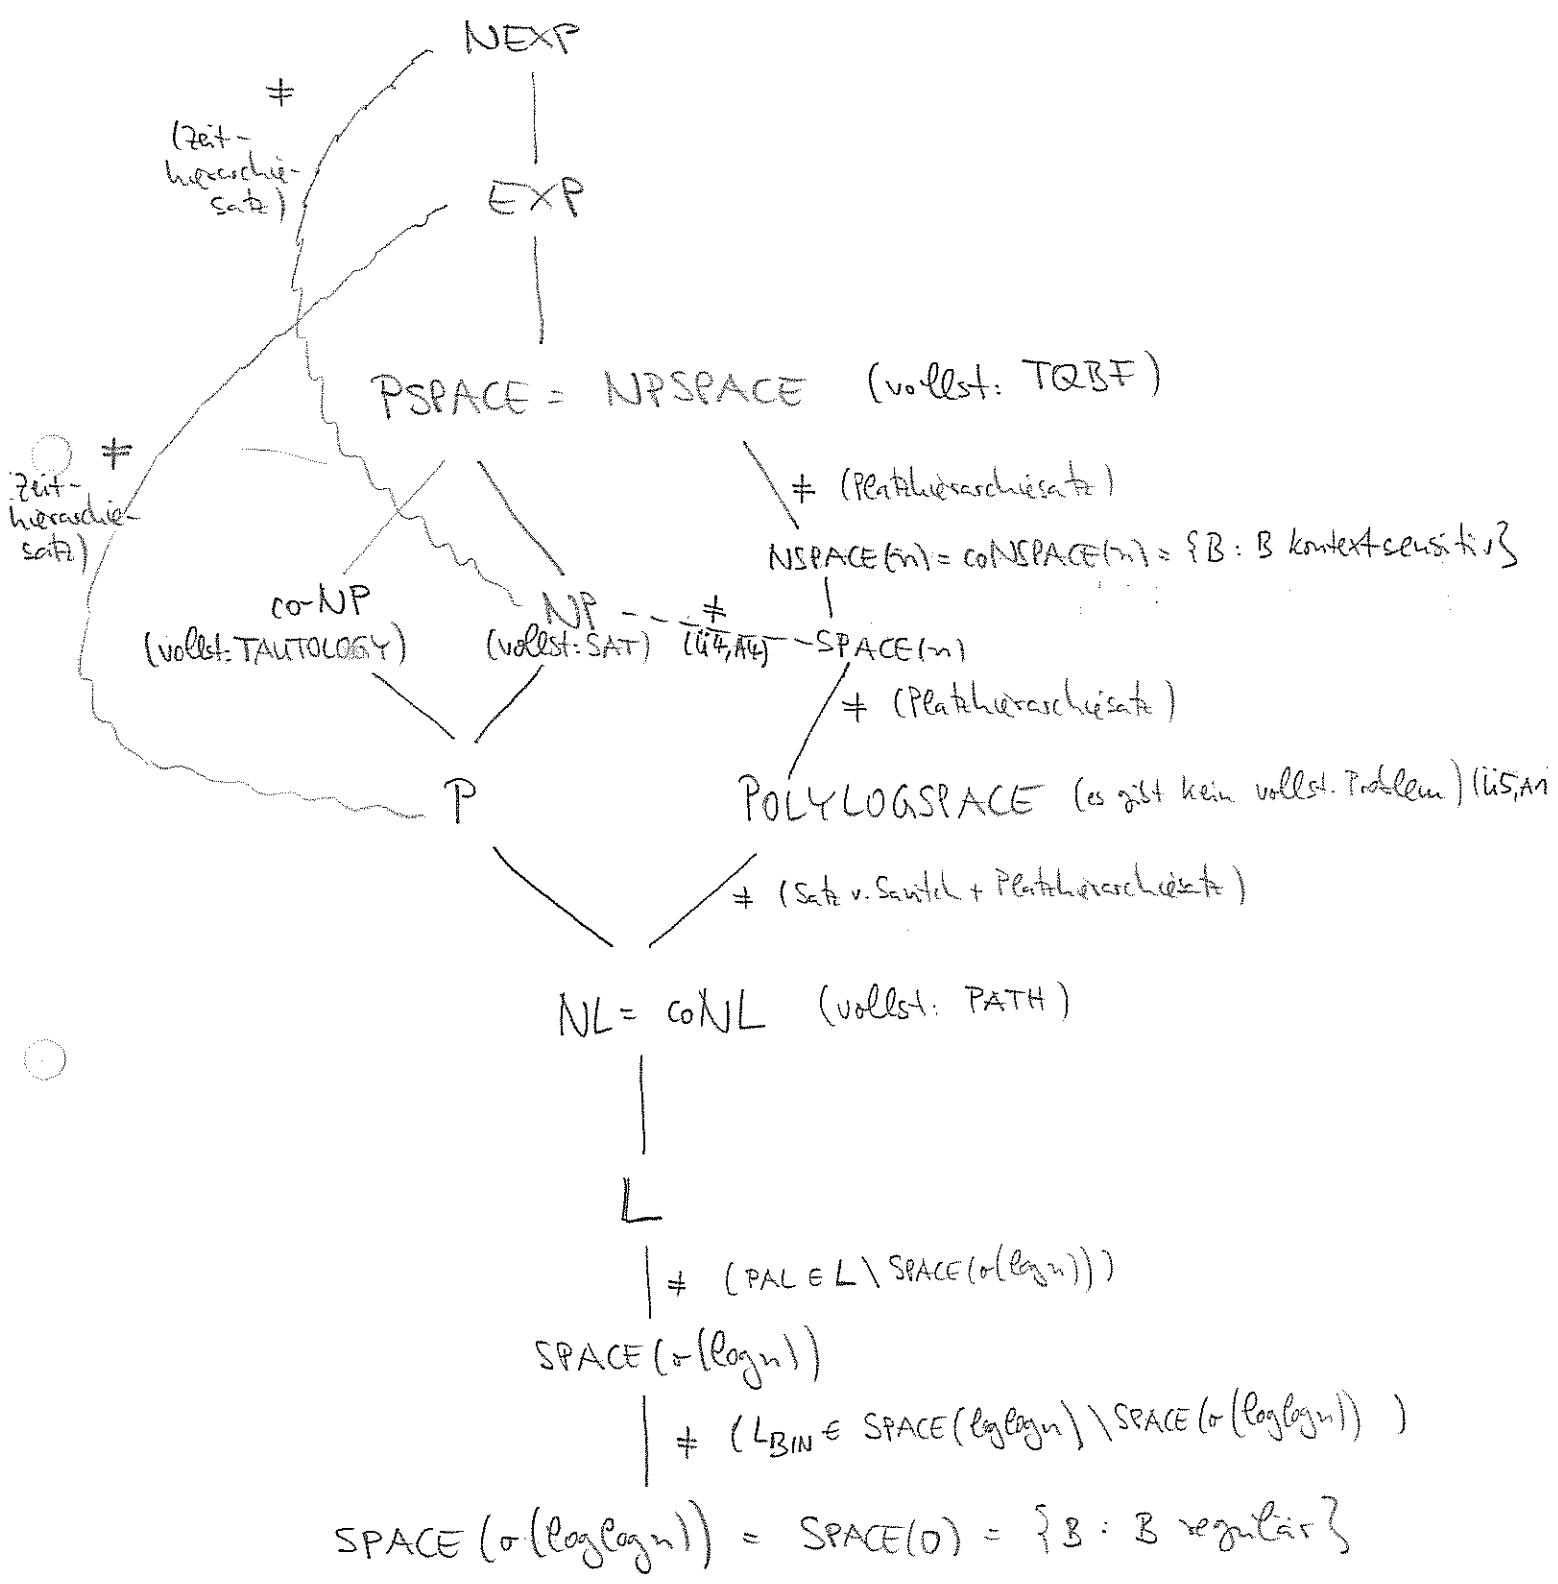 NEXP
≠
(Zeit-
hierarchie-
satz)
EXP
PSPACE = NPSPACE (vollst: TQBF)
≠
(Zeit-
hierarchie-
satz)
≠ (Platzhierarchiesatz)
NSPACE(n) = coNSPACE(n) = {B : B kontextsensitiv}
co-NP
(vollst: TAUTOLOGY)
NP
(vollst: SAT)
≠
(Ü4, A4)
SPACE(n)
≠ (Platzhierarchiesatz)
P
POLYLOGSPACE (es gibt kein vollst. Problem) (Ü5, A1
≠ (Satz v. Savitch + Platzhierarchiesatz)
NL = coNL (vollst: PATH)
L
≠ (PAL ∈ L \ SPACE(o(log n)))
SPACE(o(log n))
≠ (L_BIN ∈ SPACE(loglog n) \ SPACE(o(loglog n)) )
SPACE(o(loglog n)) = SPACE(0) = {B : B regulär}